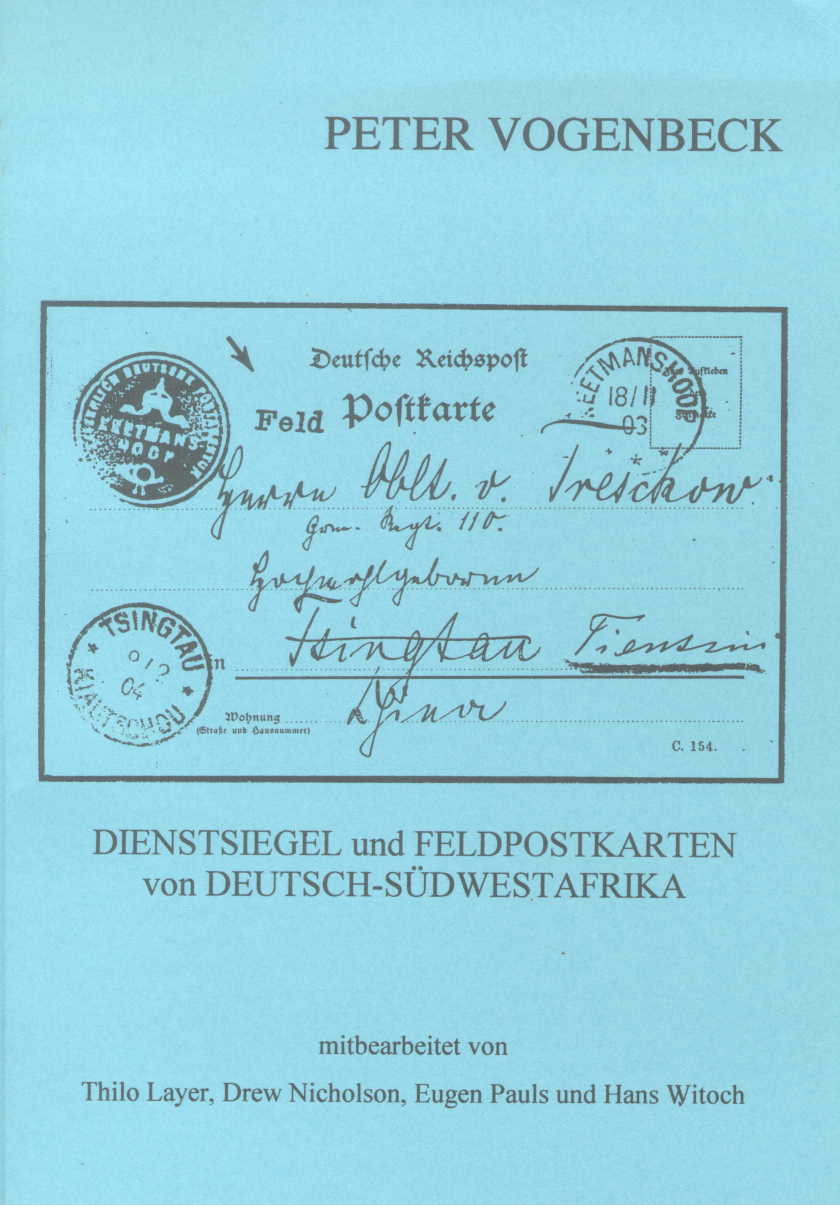 PETER VOGENBECK
KAISERLICH DEUTSCHE POSTAGENTUR
KEETMANS
HOOP
Deutsche Reichspost
Feld Postkarte
KEETMANSHOOP
18/11
03
Herrn Oblt. v. Treschkow
Gren. Regt. 110.
Hochwohlgeboren
TSINGTAU
04
KIAUTSCHOU
in Tsingtau Tientsin
China
Wohnung
(Straße und Hausnummer)
C. 154.
DIENSTSIEGEL und FELDPOSTKARTEN
von DEUTSCH-SÜDWESTAFRIKA
mitbearbeitet von
Thilo Layer, Drew Nicholson, Eugen Pauls und Hans Witoch